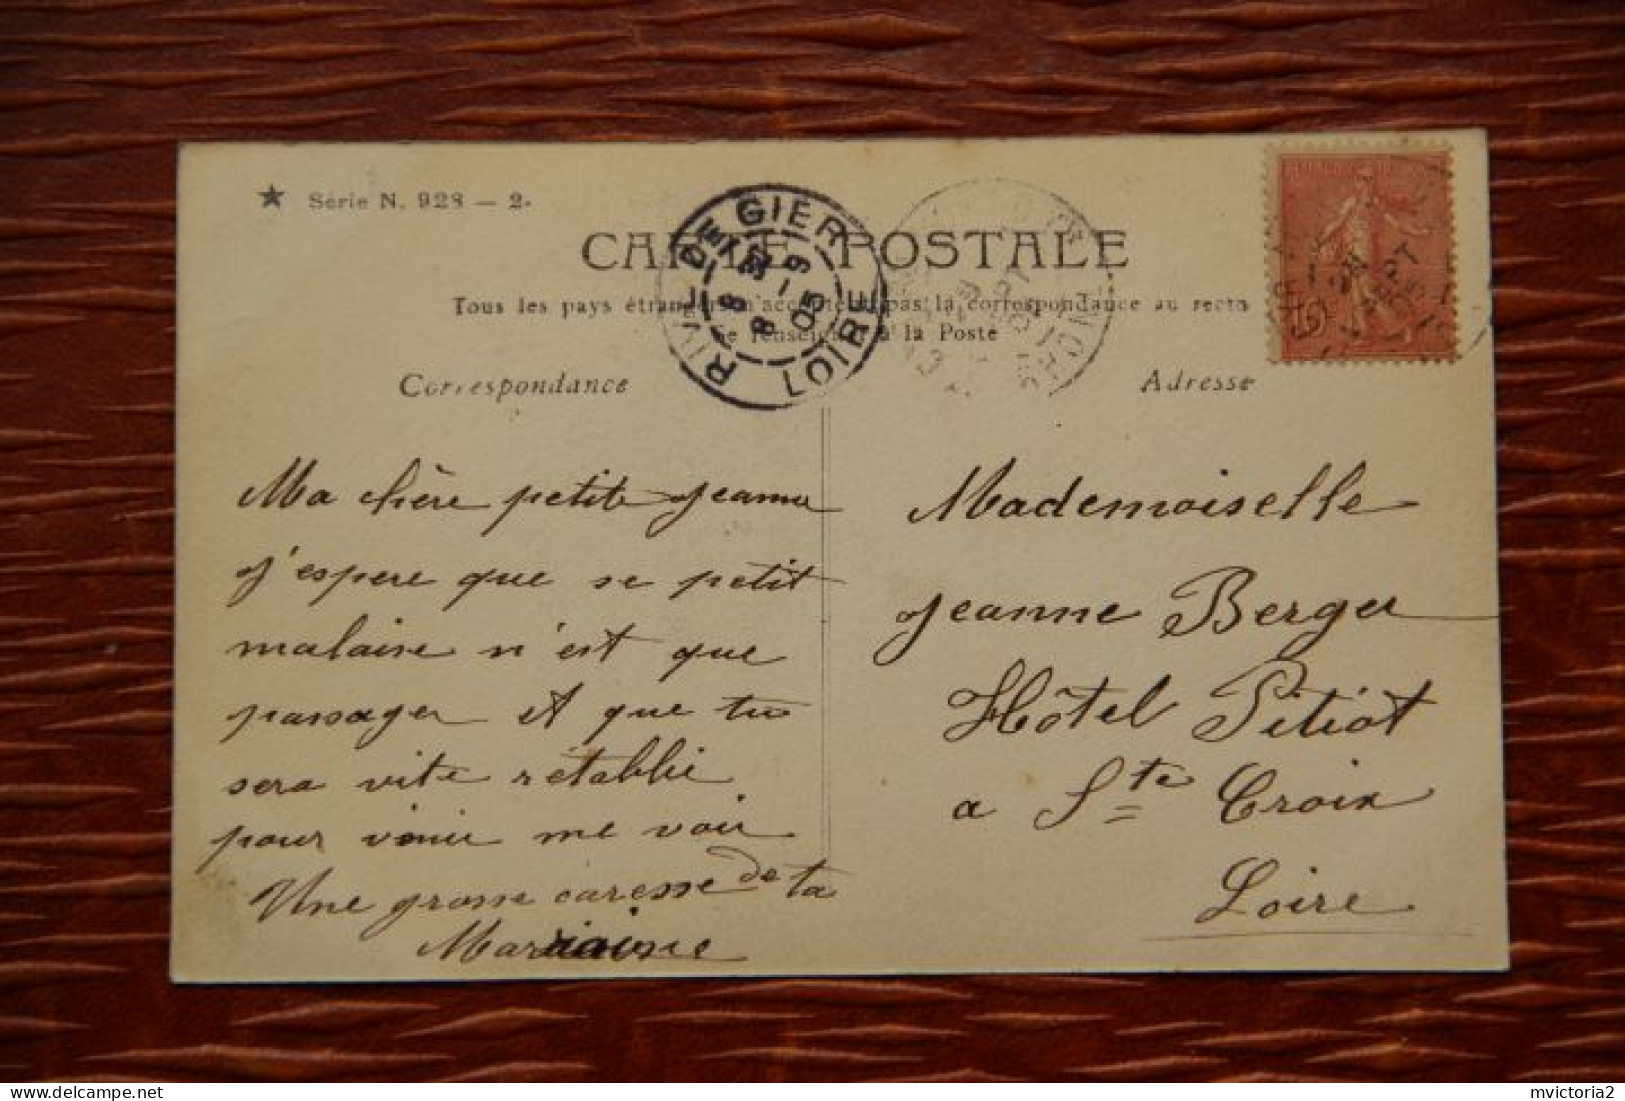 ★ Série N. 928 — 2.
CARTE POSTALE
Tous les pays étrangers n'acceptent pas la correspondance au recto
Se renseigner à la Poste
Correspondance
Adresse
RIVE DE GIER
8 9
8 05
LOIRE
RHONE
10
SEPT
05
Ma chère petite Jeanne
J'espere que se petit
malaise n'est que
passager et que tu
sera vite rétablie
pour venir me voir
Une grosse caresse de ta
Marraine
Mademoiselle
Jeanne Berger
Hôtel Pitiot
a Ste Croix
Loire
mvictoria2